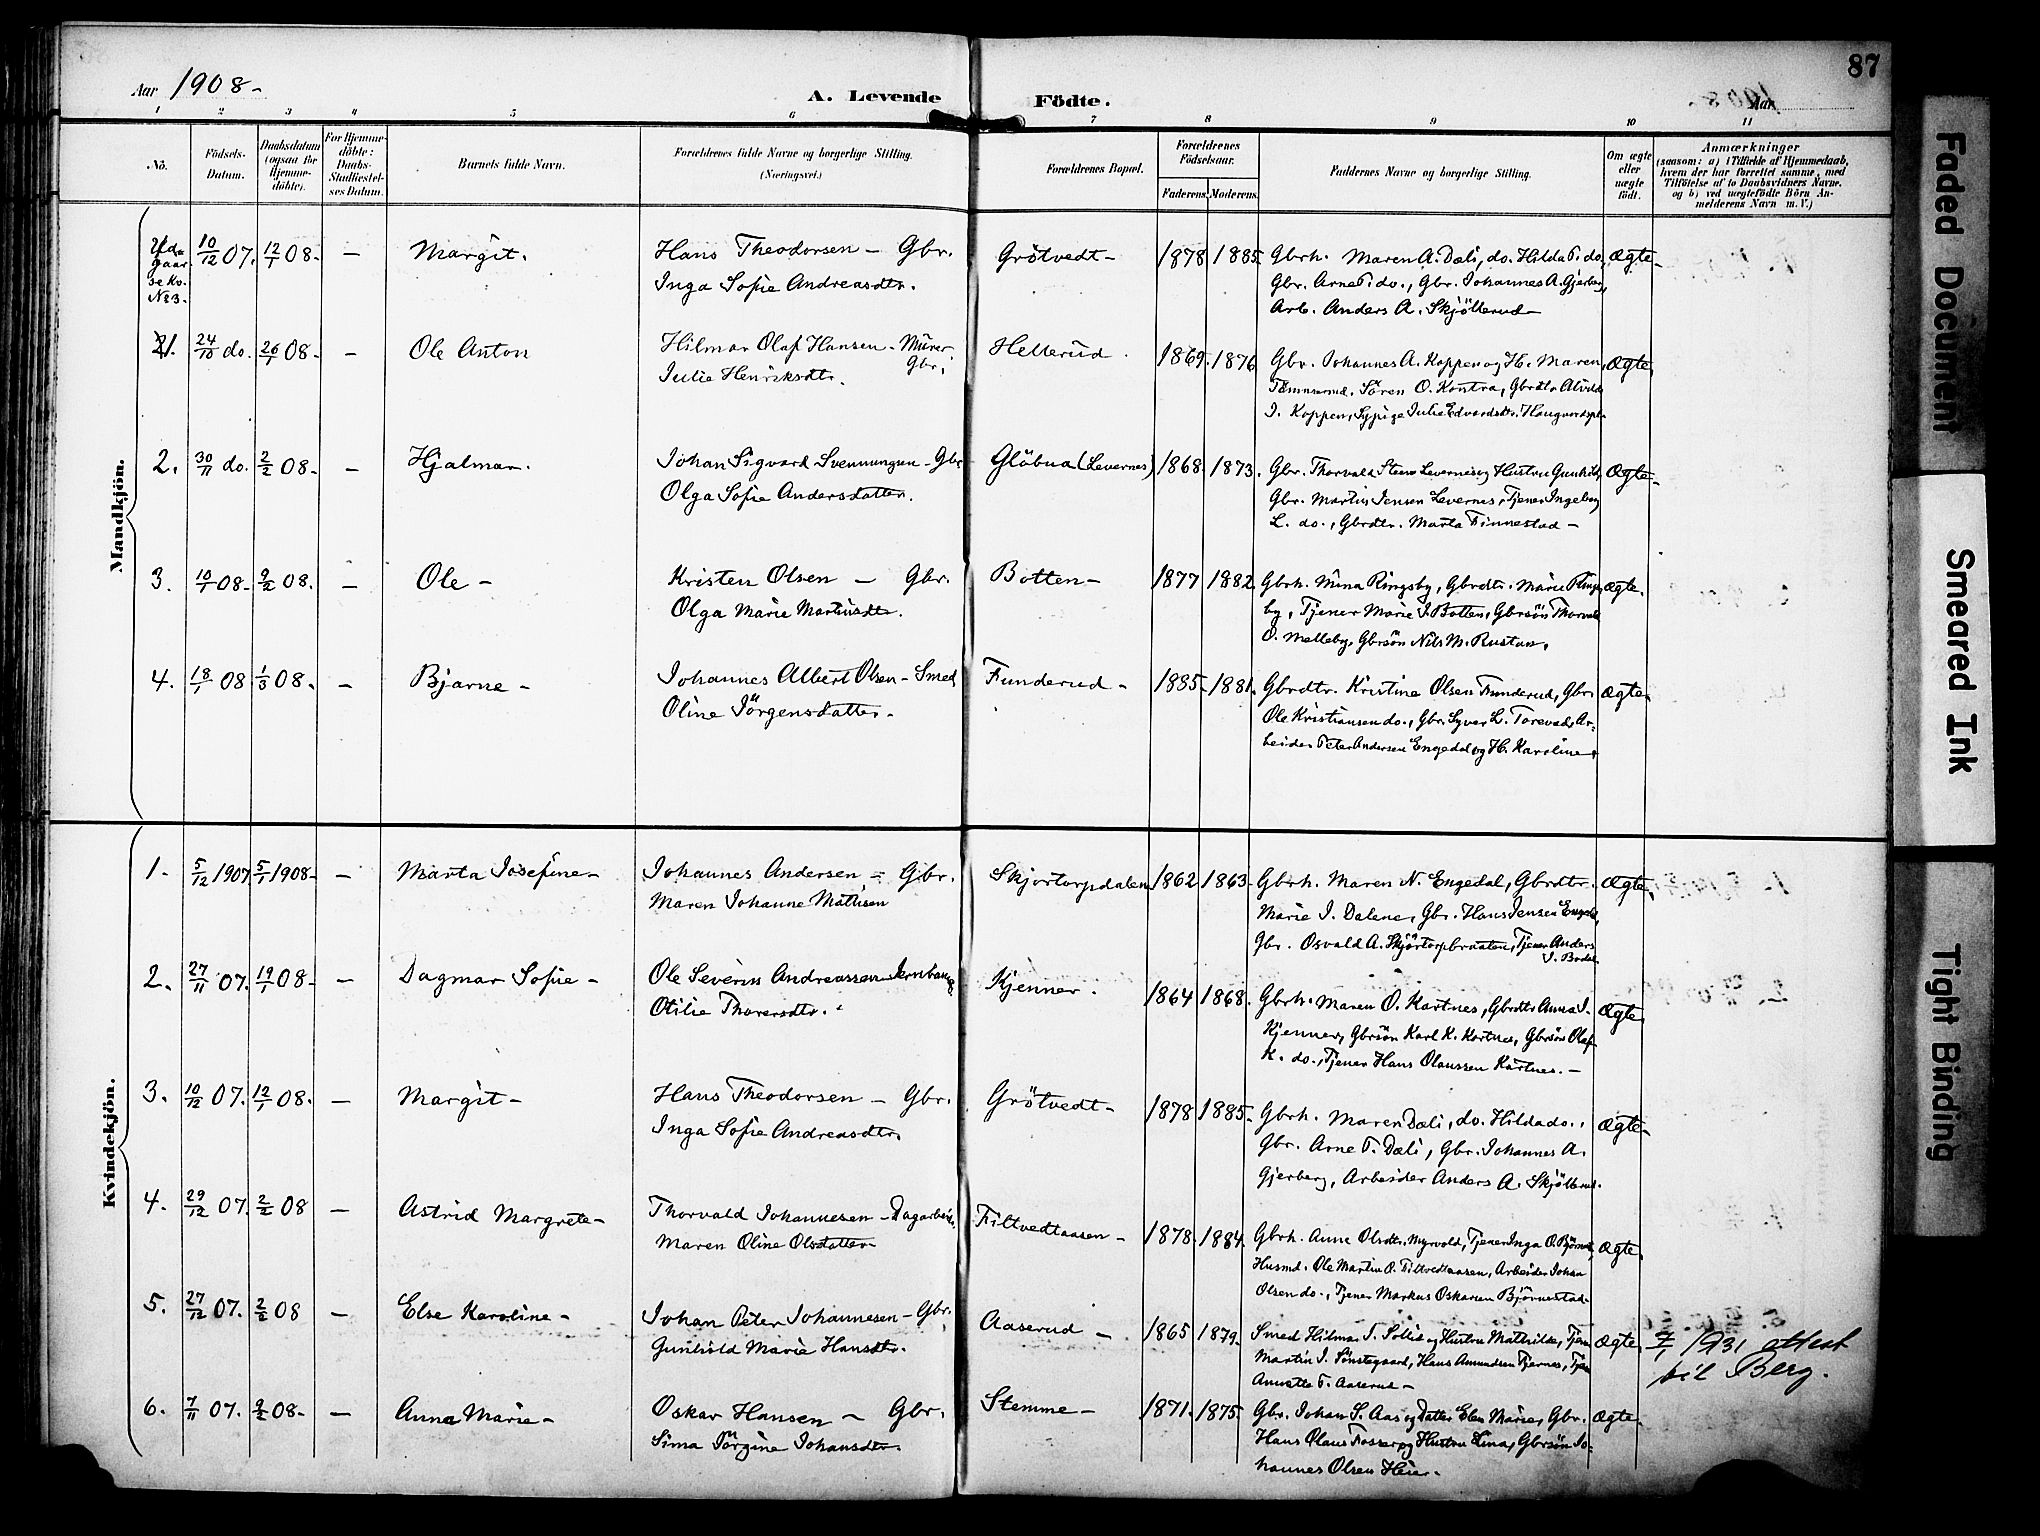 87
Aar 1908.-
A. Levende Födte.
Aar
1 2 3 4 5 6 7 8 9 10 11
No.
Födsels-Datum.
Daabsdatum (ogsaa for Hjemme-döbte).
For Hjemme-döbte: Daabs-Stadfæstel-ses Datum.
Barnets fulde Navn.
Forældrenes fulde Navne og borgerlige Stilling.
(Næringsvei.)
Forældrenes Bopæl.
Forældrenes Födselsaar.
Faderens. Moderens.
Faddernes Navne og borgerlige Stilling.
Om ægte eller uægte födt.
Anmærkninger
(saasom: a) i Tilfælde af Hjemmedaab,
hvem der har forrettet samme, med
Tilföielse af to Daabsvidners Navne.
og b) ved uægtefödte Börn An-
melderens Navn m. V.)
Mandkjön.
Ud-gaar se Kv. No 3. 10/12 07. 12/1 08.- — Margit.
Hans Theodorsen — Gbr.
Inga Sofie Andreasdtr.
Grötvedt- 1878 1885.
Gbrh. Maren A. Dæli, do. Hilda T. do,
Gbr. Arne T. do., Gbr. Johannes A. Gjerberg,
Arb. Anders A. Skjöllerud-
ægte-
1. 24/10 do. 26/1 08- - Ole Anton
Hilmar Olaf Hansen - Murer Gbr.
Julie Henriksdtr.
Hellerud. 1869. 1876
Gbr. Johannes A. Koppen og H. Maren,
Sören O. Kontra, Gbrdtr Alvilde
I. Koppen, Sypige Julie Edvardsdtr.
ægte
2. 30/11 do. 2/2 08- - Hjalmar.
Johan Sigvard Svenningsen - Gbr.
Olga Sofie Andersdatter.
Glöbua (Levernes) 1868 1873.
Gbr. Thorvald Steen Levernes og Hustru Gunhild,
Gbr. Martin Jensen Levernes, Tjener Ingeborg
L. do., Gbrdtr. Marta Finnestad —
ægte-
3. 10/1 08- 9/2 08. - Ole -
Kristen Olsen — Gbr.
Olga Marie Martinsdtr.
Botten- 1877 1882.
Gbrh. Mina Ringsby, Gbrdtr. Marie Rings-
by, Tjener Marie I. Botten, Gbrsön Thorvald
O. Melleby, Gbrsön Nils M. Rustan.
ægte.
4. 18/1 08 1/3 08. - Bjarne -
Johannes Albert Olsen - Smed
Oline Jörgensdatter.
Funderud - 1885. 1881.
Gbrdtr. Kristine Olsen Funderud, Gbr.
Ole Kristiansen do., Gbr. Syver L. Torevad, Ar-
beider Peter Andersen Engedal og H. Karoline.
ægte-
Kvindekjön.
1. 5/12 1907. 5/1 1908- - Marta Josefine-
Johannes Andersen - Gbr.
Maren Johanne Mathisen
Skjortorpdalen 1862 1863.
Gbrh. Maren N. Engedal, Gbrdtr.
Marie I. Dalene, Gbr. Hans Jensen Engedal,
Gbr. Osvald A. Skjörtorpbraaten, Tjener Anders
ægte
2. 27/11 07. 19/1 08- - Dagmar Sofie -
Ole Severin Andreassen Jernbane
Otilie Thorersdtr.
Kjenner. 1864 1868.
Gbrh. Maren O. Kartnes, Gbrdtr Anna I.
Kjenner, Gbrsön Karl K. Kartnes, Gbrsön Olaf
K. do., Tjener Hans Olaussen Kartnes. -
ægte
3. 10/12 07. 12/1 08. - Margit -
Hans Theodorsen — Gbr.
Inga Sofie Andreasdtr.
Grötvedt- 1878 1885-
Gbrh. Maren Dæli, do. Hilda do.,
Gbr. Arne T. Dæli, Gbr. Johannes A.
Gjerberg, Arbeider Anders A. Skjöllerud.
ægte-
4. 29/12 07. 2/2 08 - Astrid Margrete-
Thorvald Johannesen - Dagarbeider.
Maren Oline Olsdatter-
Filtvedtaasen - 1878. 1884.
Gbrh. Anne Olsdtr. Myrvold, Tjener Inga O.
Husmd. Ole Martin O. Filtvedtaasen, Arbeider Johan
Olsen do., Tjener Markus Oskarsen Björnestad-
ægte
5. 27/12 07. 2/2 08 - Else Karoline-
Johan Peter Johannesen - Gbr.
Gunhild Marie Hansdtr.
Aaserud - 1865 1879.
Smed Hilmar T. Sollid og Hustru Mathilde, Tjener
Martin I. Sönstegaard, Hans Amundsen Tjernes, Tjen
Annette F. Aaserud -
ægte
7/1 1931 attest
til Berg.
6. 7/11 07. 9/2 08- - Anna Marie-
Oskar Hansen - Gbr.
Sima Jörgine Johansdtr.
Stemme- 1871. 1875.
Gbr. Johan S. Aas og Datter Elen Marie, Gbr.
Hans Olaus Fosser og Hustru Lina, Gbrsön Jo-
hannes Olsen Heier.
ægte.
Faded Document
Smeared Ink
Tight Binding